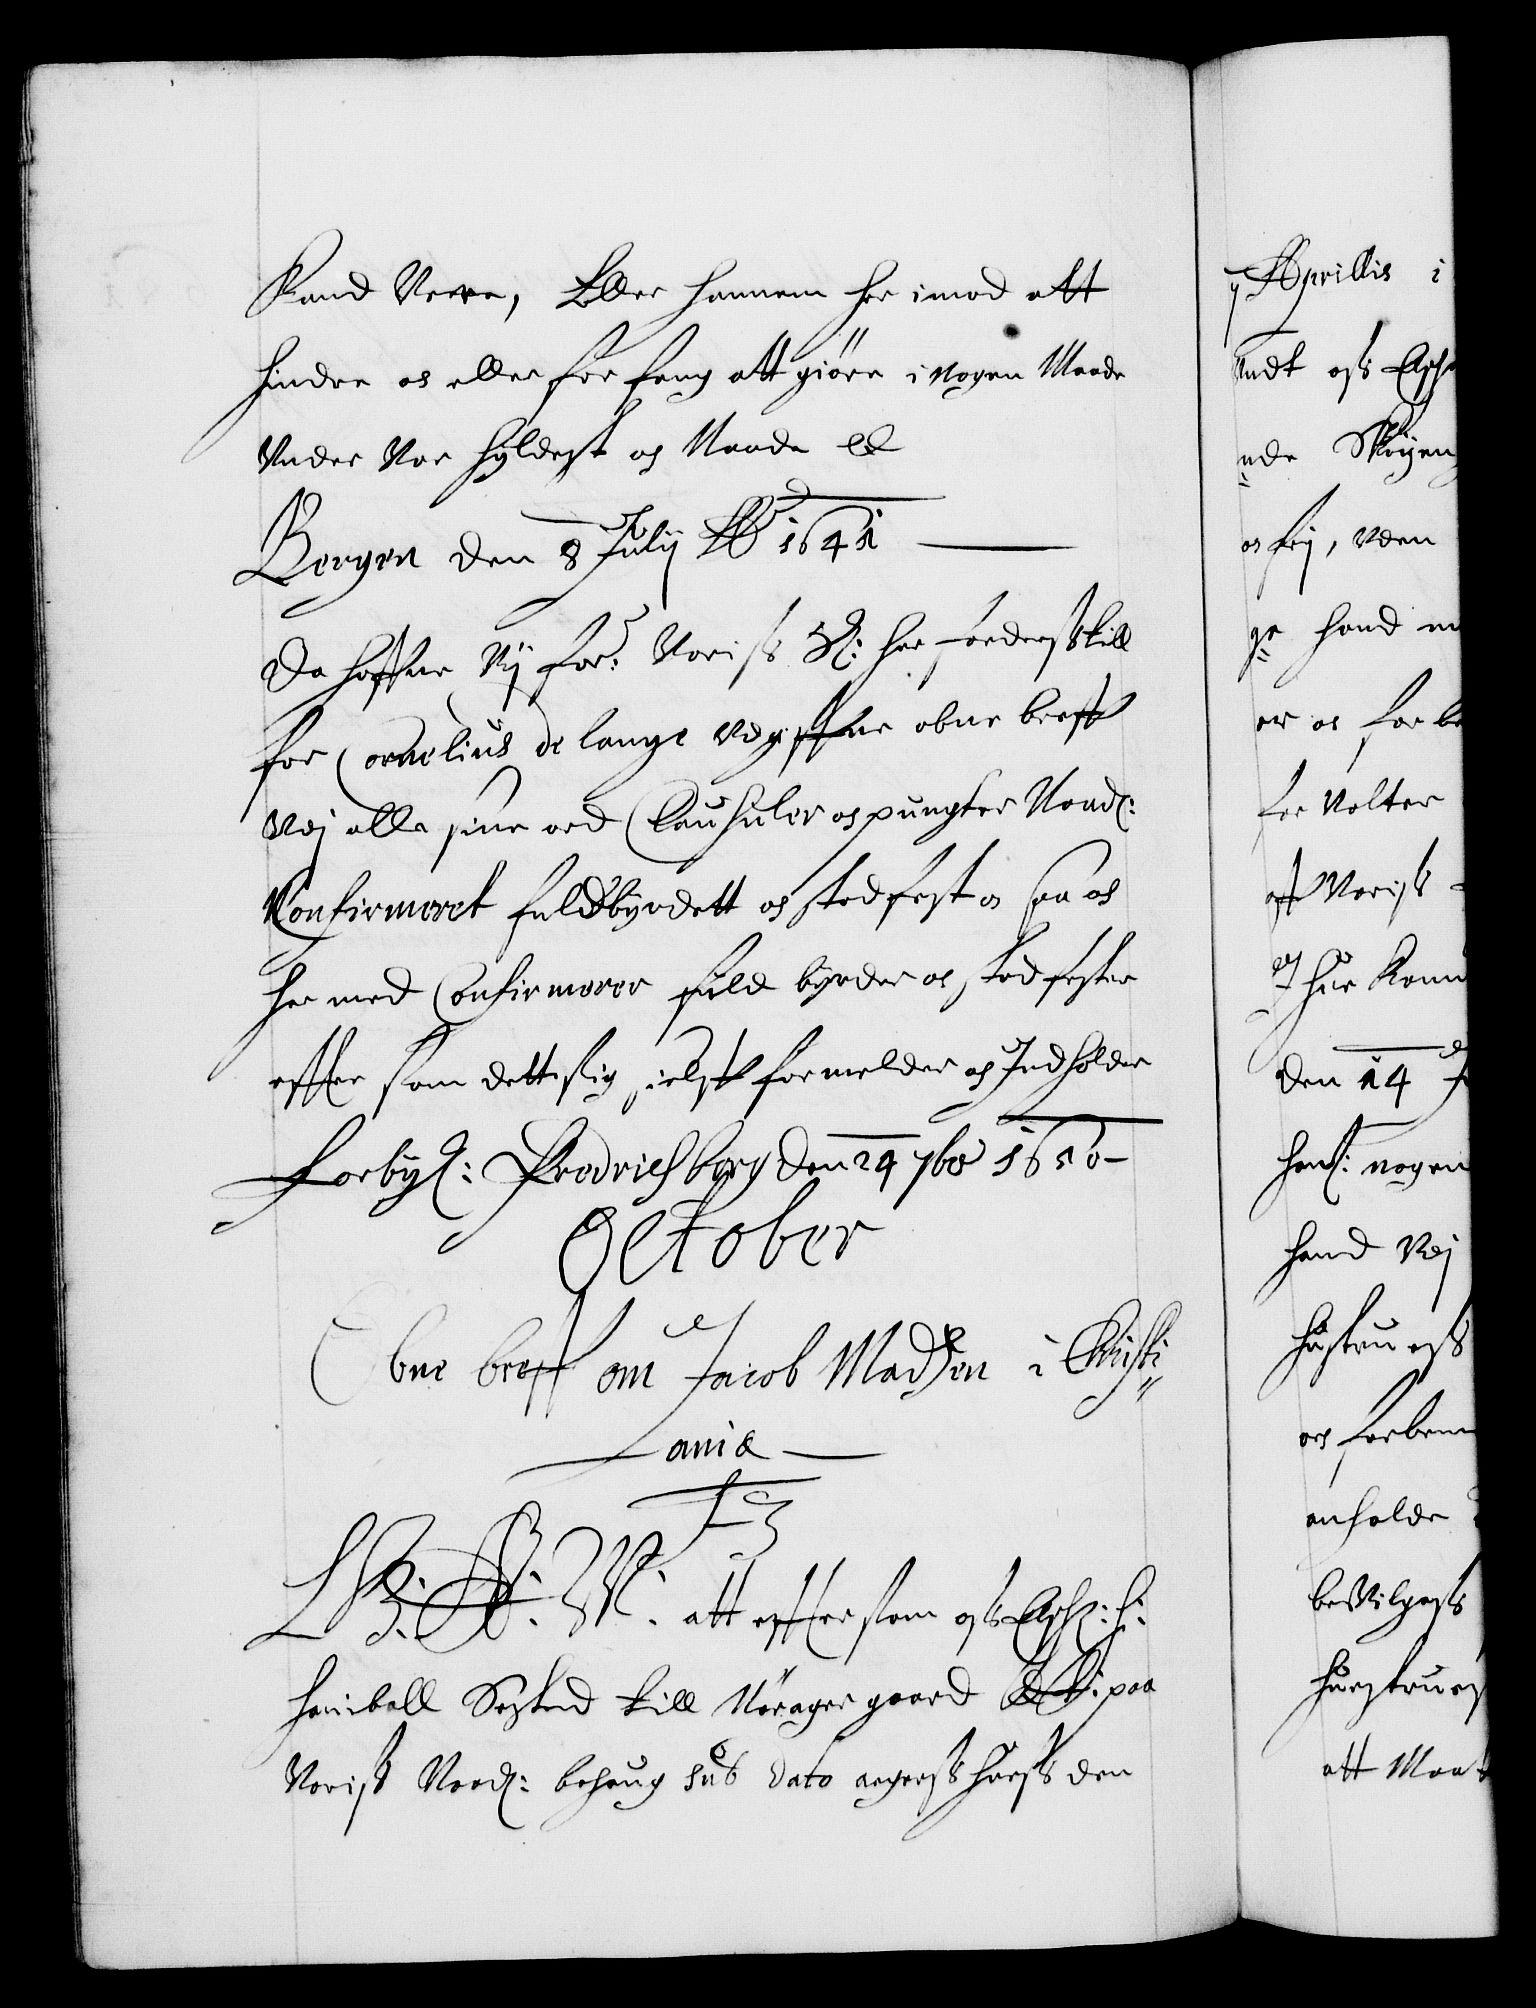 Kand Vere, Eller hannem her imod att
hindre os eller forfang att giöre i nogen Maade
Vnder Vor hyldest os Naade
Bergen den 8 Julij Ao 1641
Da haffue Vij for: Voriss Sl: her faderss till
for Cornelius de lange Vdgiffne obne breff
Vdj alle sine ord Clausuler os pungter Naadl:
Confirmeret fuldbyrdett os stadfest os saa os
her med Confirmerer fuld byrder os stadfester
effter som dett sig sielff formelder os Indholder
Forbyd: Fredrichsborg den 24 7br 1650
October
Obne breff om Jacob Madtzen i Christi
ania
F 3
G: A: W: att efftersom oss Elsch: h:
Haniball Sested till Nörager gaard paa
Voriss Naadl: behaug sub dato agerss huess den
Aprillis i
undt oss Elsch
nde Sköyen
os frj, vden
ge hand
er os forbe
for Volter
aff Voriss
Ihue Kom
den 14
hanl: nogen
hand Vdj
hustru oss
os forben
anholde
beVilgess
huestru
att Maa